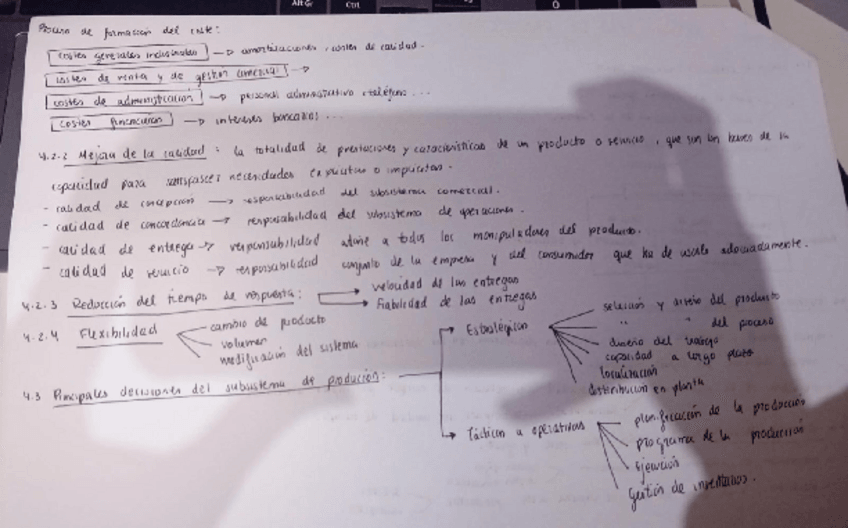 Proceso de formación del coste:
costes generales industriales → amortizaciones, costes de calidad.
costes de venta y de gestión comercial →
costes de administración → personal administrativo, teléfono...
costes financieros → intereses bancarios...
4.2.2 Mejora de la calidad: la totalidad de prestaciones y características de un producto o servicio, que son las bases de la
capacidad para satisfacer necesidades explícitas o implícitas.
- calidad de concepción → responsabilidad del subsistema comercial.
- calidad de concordancia → responsabilidad del subsistema de operaciones.
- calidad de entrega → responsabilidad atañe a todos los manipuladores del producto.
- calidad de servicio → responsabilidad conjunto de la empresa y del consumidor que ha de usarlo adecuadamente.
4.2.3 Reducción del tiempo de respuesta: → velocidad de las entregas
→ Fiabilidad de las entregas
4.2.4 Flexibilidad
cambio de producto
volumen
modificación del sistema
4.3 Principales decisiones del subsistema de producción:
→ Estratégicas
selección y diseño del producto
" " del proceso
diseño del trabajo
capacidad a largo plazo
localización
distribución en planta
→ Tácticas u operativas
planificación de la producción
programa de la producción
ejecución
Gestión de inventarios.